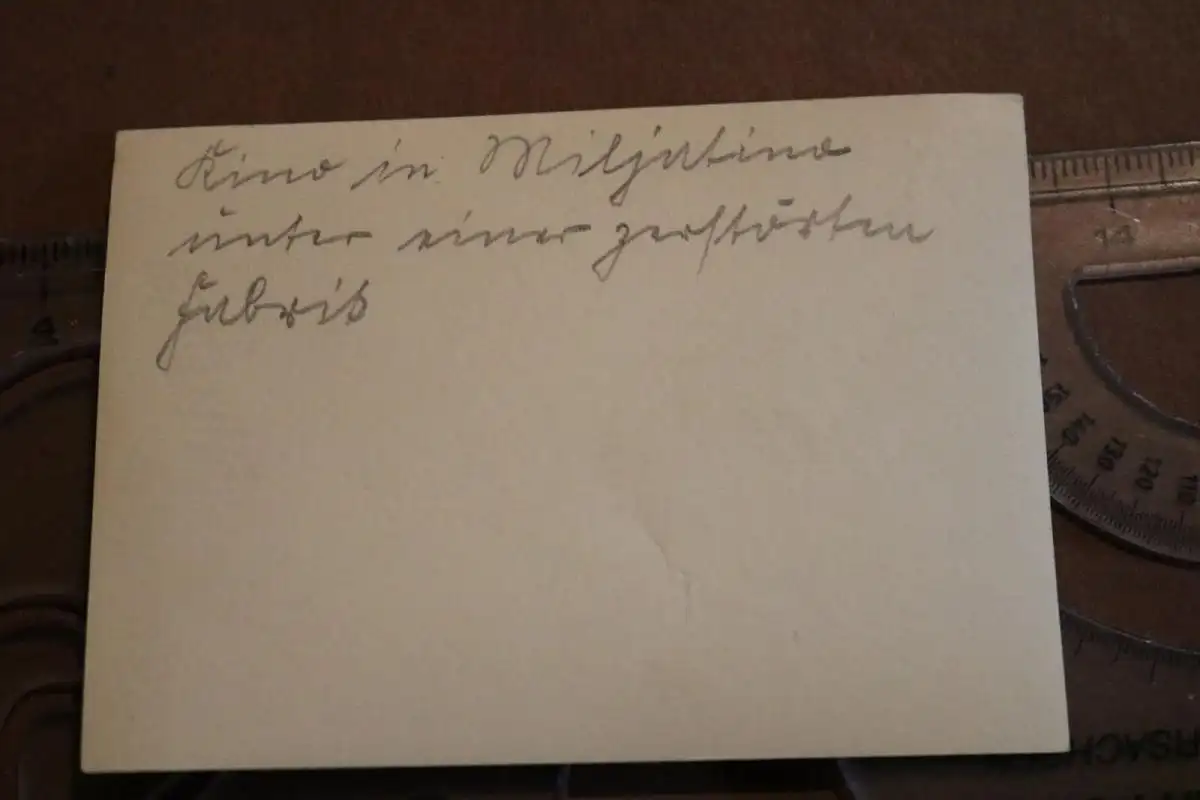 Kino in Miljatino
unter einer zerstörten
Fabrik
14
4
150
140
130
120
110